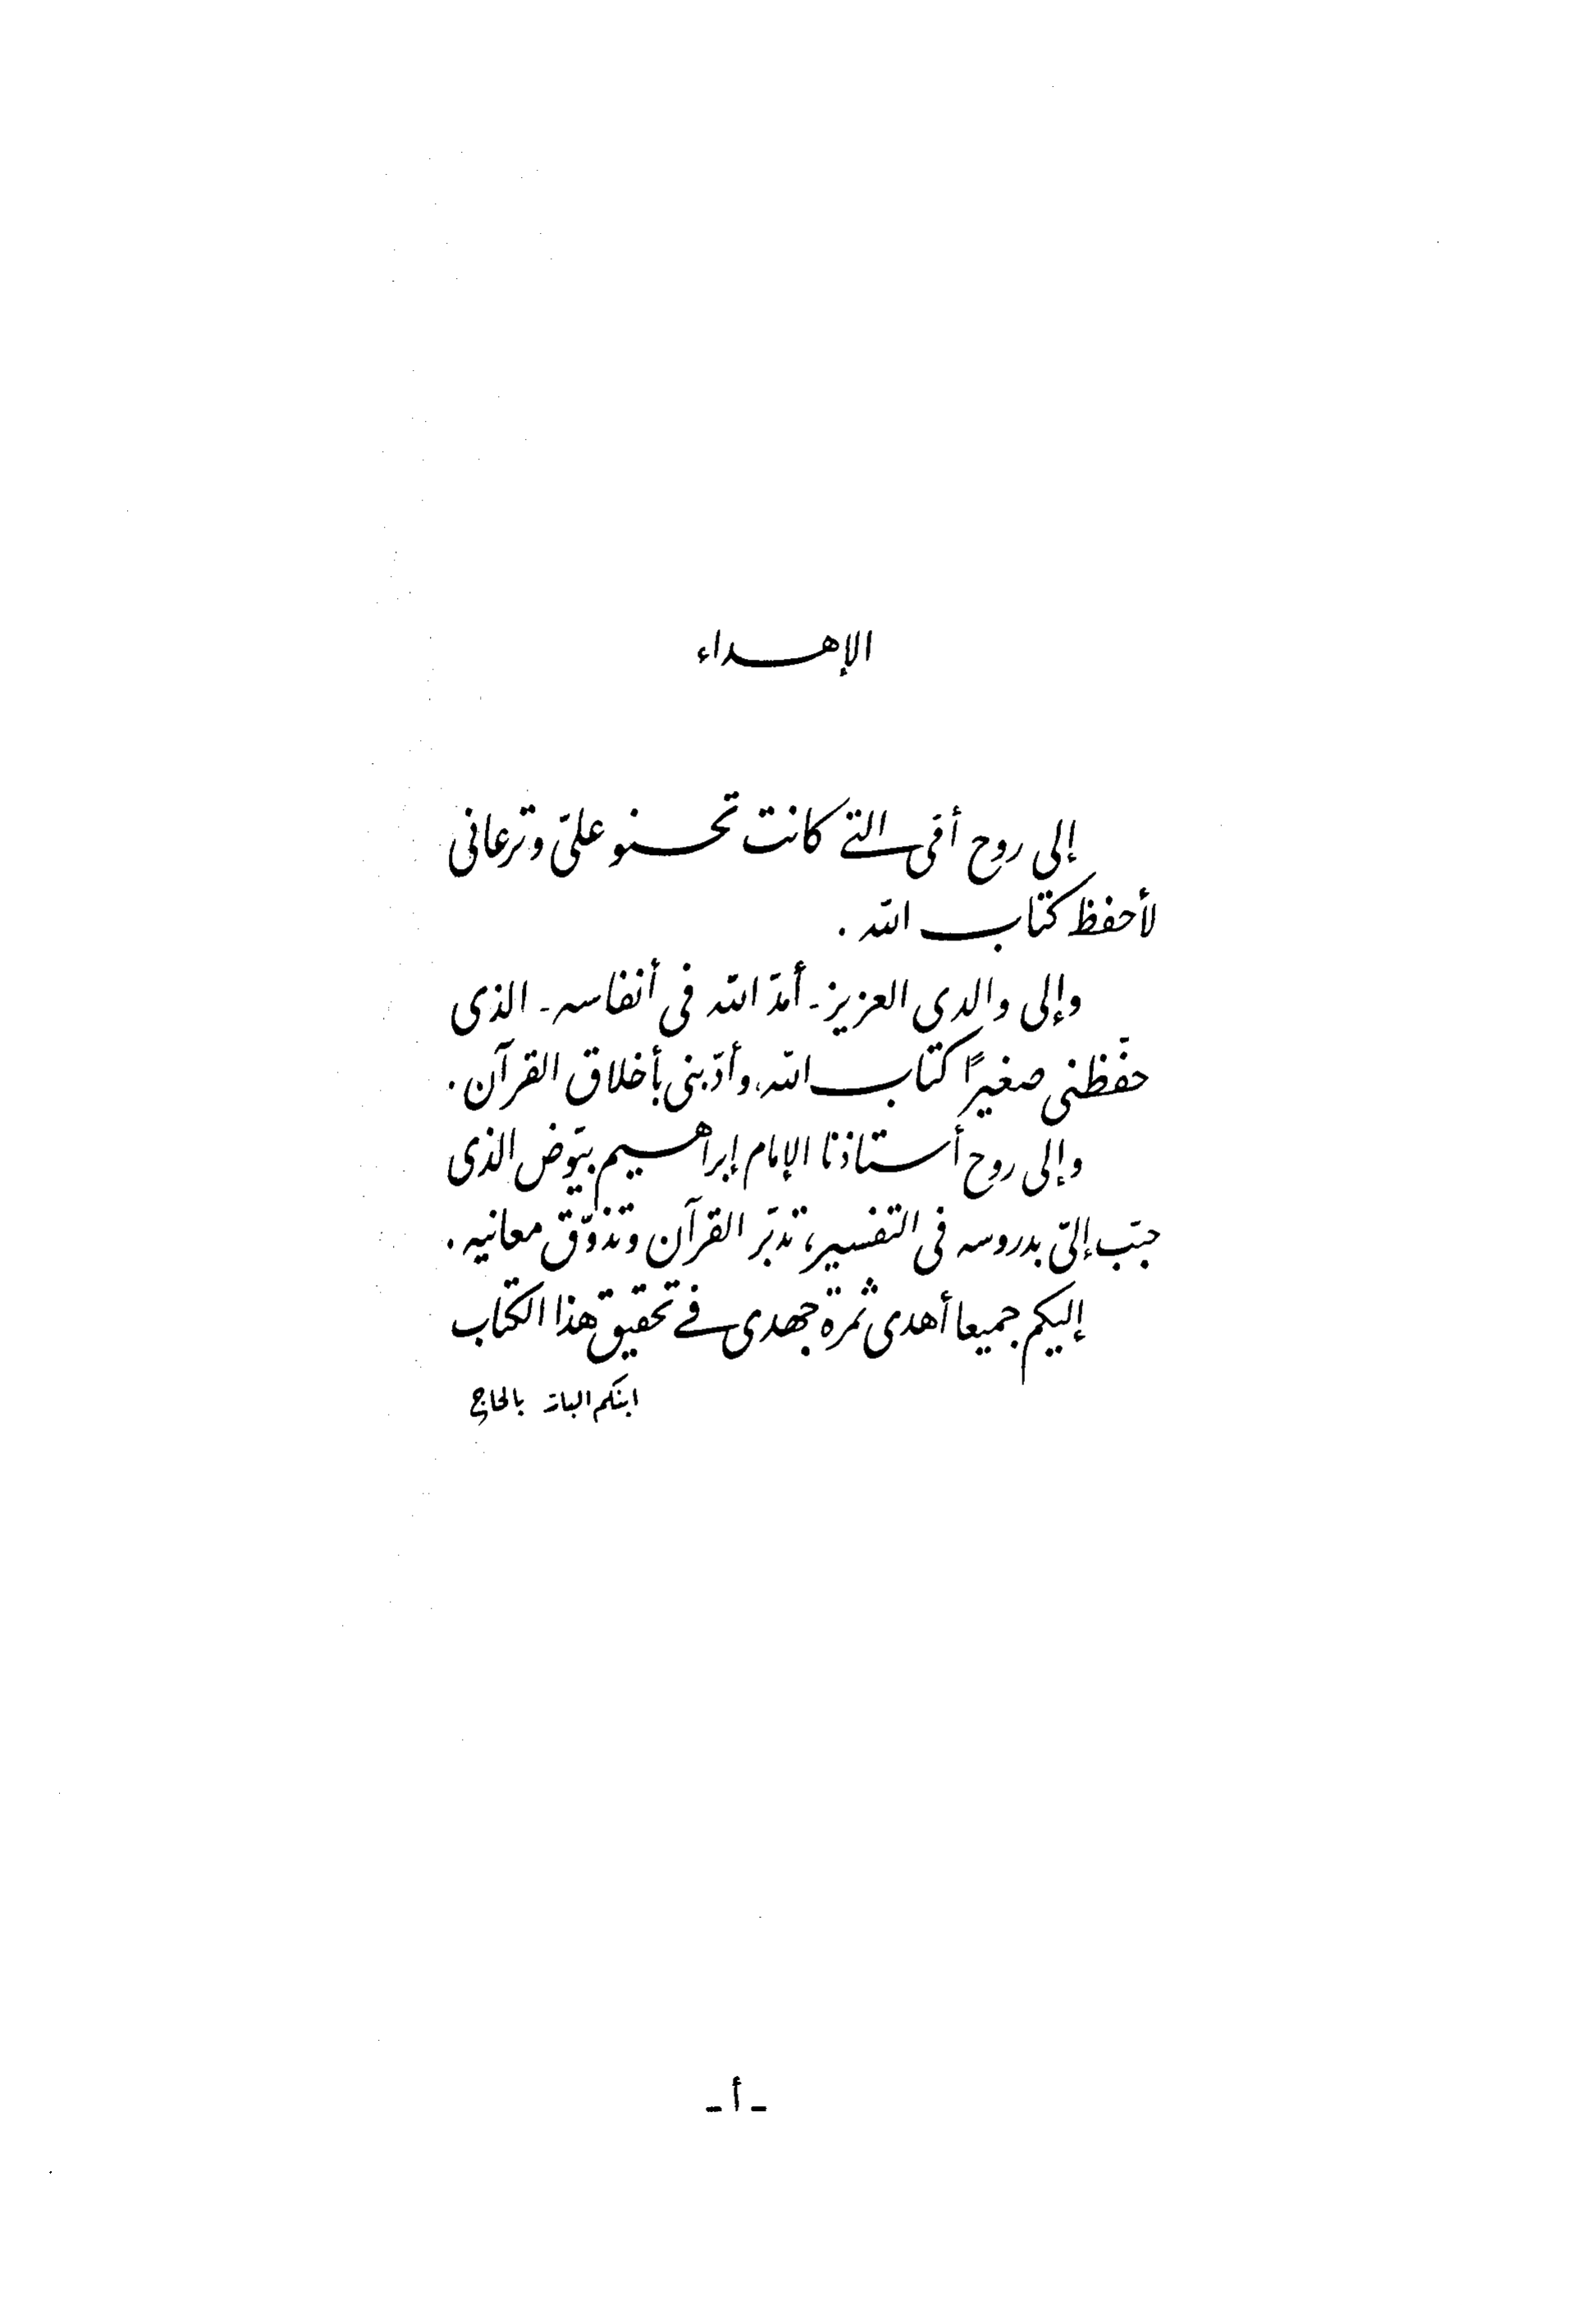 الإهداء
إلى روح أمّى التى كانت تحنو علىّ وترعانى
لأحفظ كتاب الله .
وإلى والدى العزيز - أمدّ الله فى أنفاسه - الذى
حفّظنى صغيرًا كتاب الله، وأدّبنى بأخلاق القرآن .
وإلى روح أستاذنا الإمام إبراهيم بيّوض الذى
حبّب إلىّ بدروسه فى التفسير، تدبّر القرآن وتذوّق معانيه .
إليكم جميعا أهدى ثمرة جهدى فى تحقيق هذا الكتاب
ابنكم البارّ بالحاج
- أ -